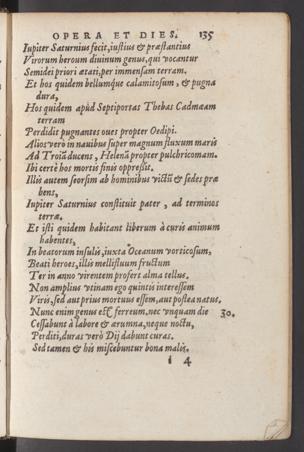 OPERA ET DIES. 135
Iupiter Saturnius fecit, iustius & præstantius
Virorum heroum diuinum genus, qui vocantur
Semidei priori ætati, per immensam terram.
Et hos quidem bellumque calamitosum, & pugna
dura,
Hos quidem apud Septiportas Thebas Cadmæam
terram
Perdidit pugnantes oues propter Oedipi.
Alios verò in nauibus super magnum fluxum maris
Ad Troiã ducens, Helenã propter pulchricomam.
Ibi certè hos mortis finis oppressit.
Illis autem seorsim ab hominibus victũ & sedes præ
bens,
Iupiter Saturnius constituit pater, ad terminos
terræ.
Et isti quidem habitant liberum à curis animum
habentes,
In beatorum insulis, iuxta Oceanum vorticosum,
Beati heroes, illis mellifluum fructum
Ter in anno virentem profert alma tellus.
Non amplius vtinam ego quintis interessem
Viris, sed aut prius mortuus essem, aut postea natus.
Nunc enim genus est ferreum, nec vnquam die 30.
Cessabunt à labore & ærumna, neque noctu,
Perditi, duras verò Dij dabunt curas.
Sed tamen & his miscebuntur bona malis.
i 4